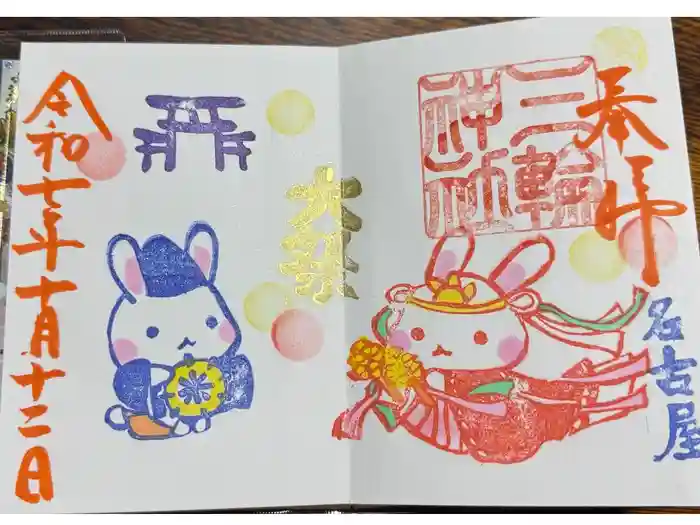 奉拝
三輪
神社
名古屋
大祭
令和七年十月十二日